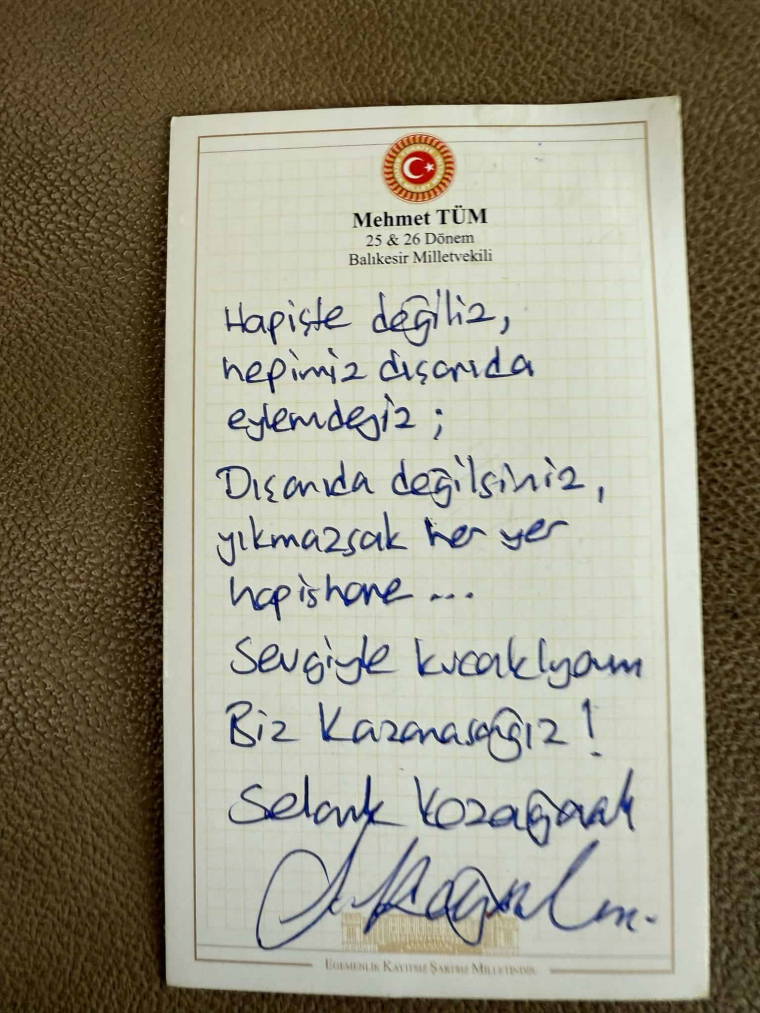 Mehmet TÜM
25 & 26 Dönem
Balıkesir Milletvekili
Hapiste değiliz,
hepimiz dışarıda
eylemdeyiz ;
Dışarıda değilsiniz,
yıkmazsak her yer
hapishane ...
Sevgiyle kucaklıyorum
Biz Kazanacağız !
Selçuk Kozağaçlı
EGEMENLİK KAYITSIZ ŞARTSIZ MİLLETİNDİR